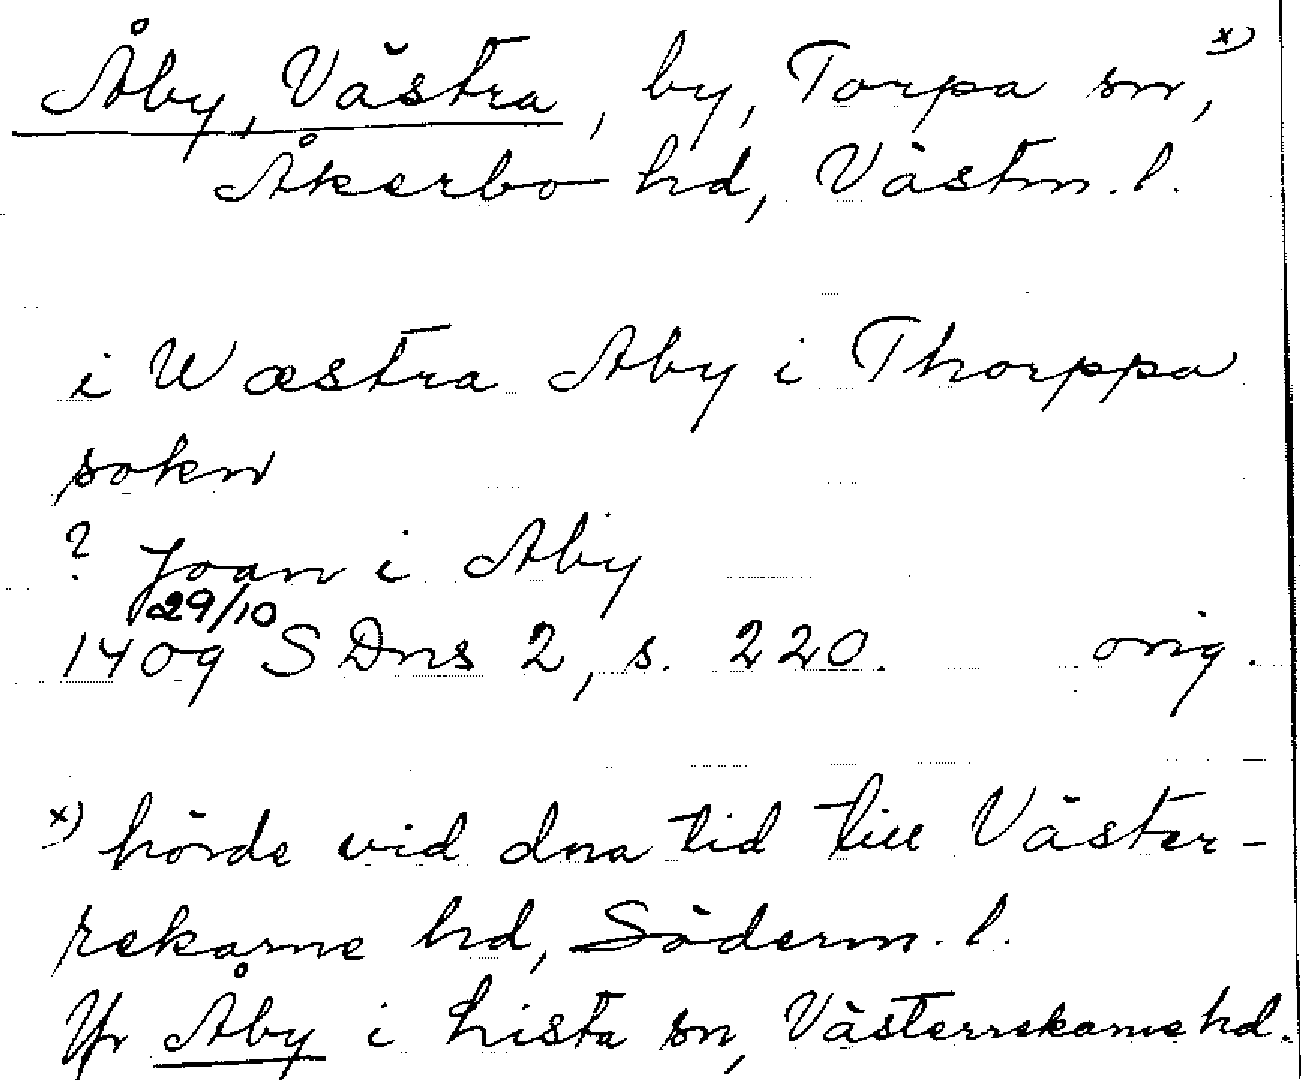 Åby, Västra, by, Torpa sn, x)
Åkerbo hd, Västm. l.
i Wæstra Aby i Thorppa
sokn
? Joan i Aby
29/10
1409 SDns 2, s. 220. orig.
x) hörde vid dna tid till Väster-
rekarne hd, Söderm. l.
Jfr Åby i Lista sn, Västerrekarne hd.